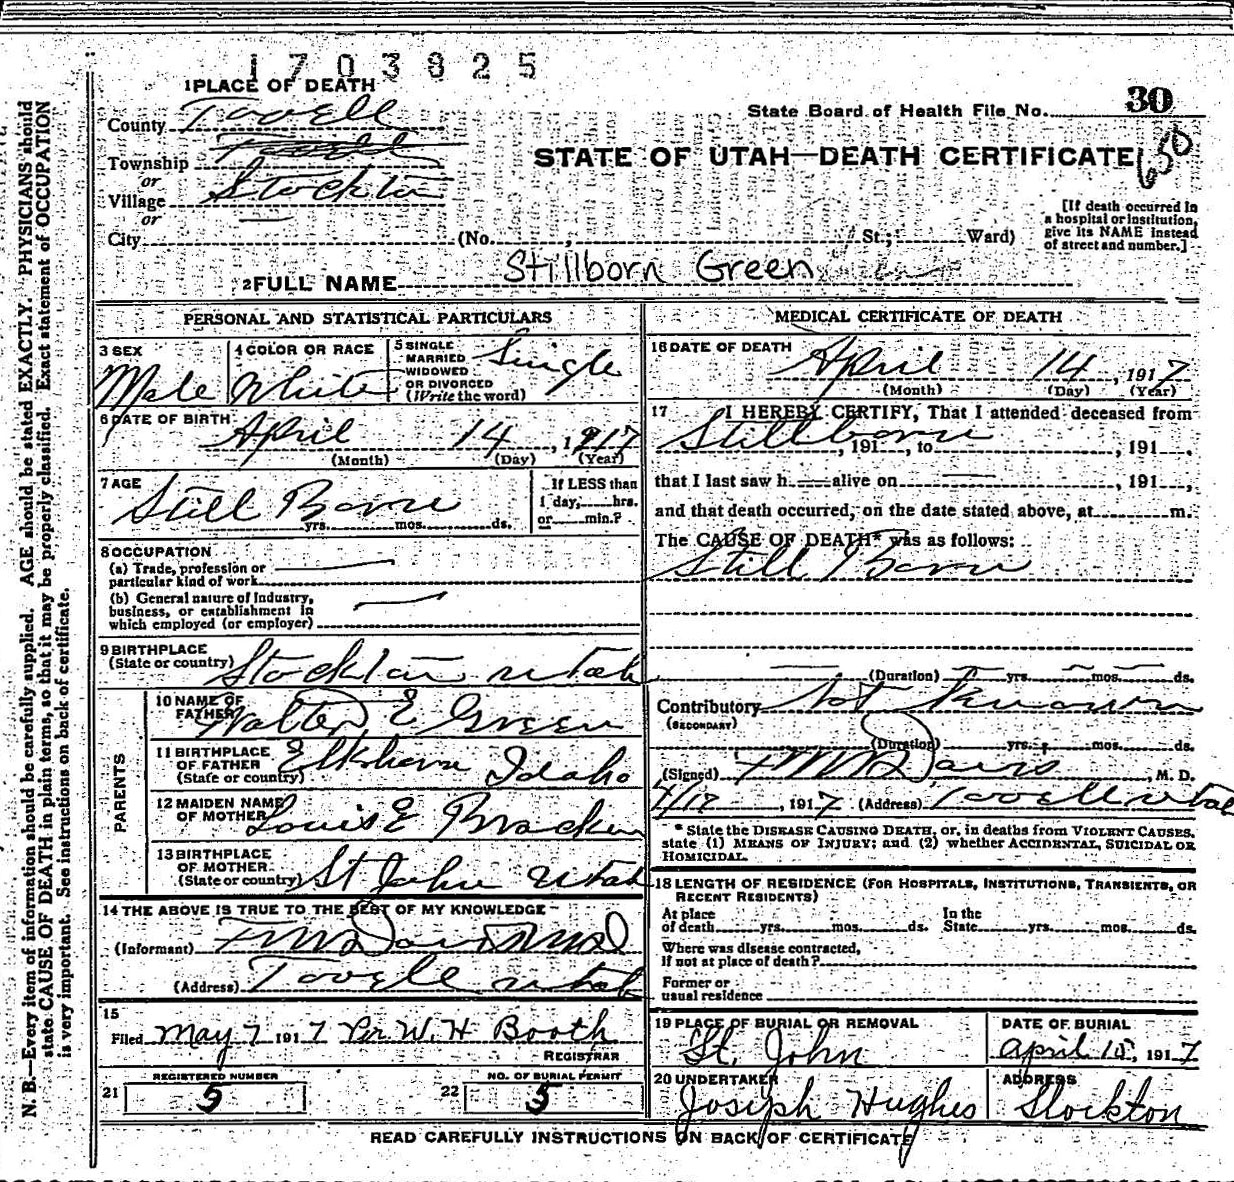 1703825
1 PLACE OF DEATH
County Tooell
State Board of Health File No. 30
Township
or
STATE OF UTAH—DEATH CERTIFICATE 650
Village Stockton
or
City — (No. , St.; Ward)
[If death occurred in
a hospital or institution,
give its NAME instead
of street and number.]
2 FULL NAME Stillborn Green
PERSONAL AND STATISTICAL PARTICULARS
3 SEX
Male
4 COLOR OR RACE
White
5 SINGLE
MARRIED
WIDOWED
OR DIVORCED
(Write the word)
Single
6 DATE OF BIRTH
April 14, 1917
(Month) (Day) (Year)
7 AGE
Still Born
yrs. mos. ds.
If LESS than
1 day, hrs.
or min.?
8 OCCUPATION
(a) Trade, profession or
particular kind of work —
(b) General nature of Industry,
business, or establishment in
which employed (or employer) —
9 BIRTHPLACE
(State or country) Stockton Utah
PARENTS
10 NAME OF
FATHER Walter E Green
11 BIRTHPLACE
OF FATHER
(State or country) Elkhorn Idaho
12 MAIDEN NAME
OF MOTHER Louis E Bracken
13 BIRTHPLACE
OF MOTHER
(State or country) St John Utah
14 THE ABOVE IS TRUE TO THE BEST OF MY KNOWLEDGE
(Informant) F M Davis M D
(Address) Tooell Utah
15
Filed May 7 1917 Per W. H Booth
REGISTRAR
REGISTERED NUMBER
21 5
NO. OF BURIAL PERMIT
22 5
MEDICAL CERTIFICATE OF DEATH
16 DATE OF DEATH
April 14, 1917
(Month) (Day) (Year)
17 I HEREBY CERTIFY, That I attended deceased from
Stillborn, 191 , to , 191 ,
that I last saw h — alive on — , 191 ,
and that death occurred, on the date stated above, at m.
The CAUSE OF DEATH* was as follows:
Still Born
(Duration) yrs. mos. ds.
Contributory Not Known
(SECONDARY)
(Duration) yrs. mos. ds.
(Signed) F M Davis, M. D.
4/17, 1917 (Address) Tooell Utah
* State the DISEASE CAUSING DEATH, or, in deaths from VIOLENT CAUSES,
state (1) MEANS OF INJURY; and (2) whether ACCIDENTAL, SUICIDAL OR
HOMICIDAL.
18 LENGTH OF RESIDENCE (FOR HOSPITALS, INSTITUTIONS, TRANSIENTS, OR
RECENT RESIDENTS)
At place
of death yrs. mos. ds.
In the
State yrs. mos. ds.
Where was disease contracted,
if not at place of death?
Former or
usual residence
19 PLACE OF BURIAL OR REMOVAL
St. John
DATE OF BURIAL
April 15, 1917
20 UNDERTAKER
Joseph Hughes
ADDRESS
Stockton
READ CAREFULLY INSTRUCTIONS ON BACK OF CERTIFICATE
N. B.—Every item of information should be carefully supplied. AGE should be stated EXACTLY. PHYSICIANS should
state CAUSE OF DEATH in plain terms, so that it may be properly classified. Exact statement of OCCUPATION
is very important. See instructions on back of certificate.